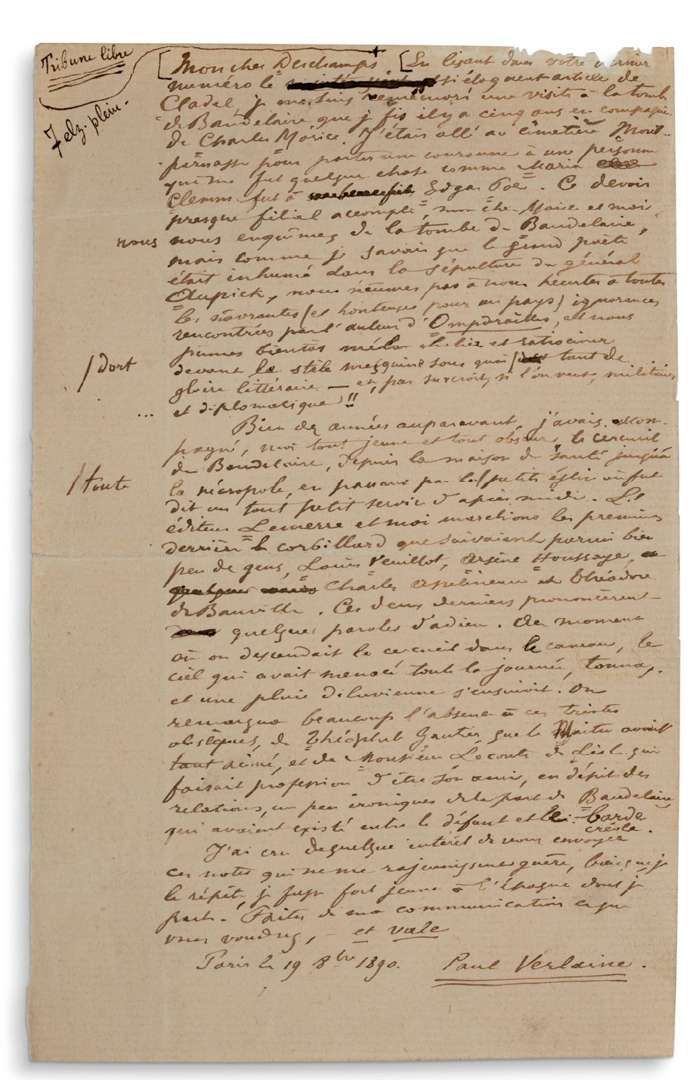 Tribune libre
7 elz plein.
Mon cher Deschamps [En lisant dans votre dernier
numéro le si éloquent article de
Cladel, je me suis remémoré une visite à la tombe
de Baudelaire que je fis il y a cinq ans en compagnie
de Charles Morice. J'étais allé au cimetière Mont-
parnasse pour porter une couronne à une personne
qui me fut quelque chose comme Maria
Clemm fut à Edgar Poë. Ce devoir
presque filial accompli mon cher Morice et moi
nous
nous enquîmes de la tombe de Baudelaire,
mais comme je savais que le grand poète
était inhumé dans la sépulture du général
Aupick, nous n'eûmes pas à nous heurter à toutes
les navrantes (et honteuses pour un pays) ignorances
rencontrées par l'auteur d'Ompdrailles, et nous
pûmes bientôt méditer et ratiociner
devant la stèle mesquine sous quoi
/dort
tant de
gloire littéraire — et, par surcroît, si l'on veut, militaire
... et diplomatique!!
Bien des années auparavant, j'avais accom-
pagné, moi tout jeune et tout obscur, le cercueil
de Baudelaire, depuis la maison de santé jusqu'à
/toute
la nécropole, en passant par la petite église où fut
dit un tout petit service d'après-midi. L'
éditeur Lemerre et moi marchions les premiers
derrière le corbillard que suivaient parmi bien
peu de gens, Louis Veuillot, Arsène Houssaye,
Charles Asselineau et Théodore
de Banville. Ces deux derniers prononcèrent
quelques paroles d'adieu. Au moment
où on descendait le cercueil dans le caveau, le
ciel qui avait menacé toute la journée, tonna,
et une pluie diluvienne s'ensuivit. On
remarqua beaucoup l'absence à ces tristes
obsèques, de Théophile Gautier, que le Maître avait
tant aimé, et de Monsieur Leconte de Lisle qui
faisait profession d'être son ami, en dépit des
relations, un peu ironiques de la part de Baudelaire
qui avaient existé entre le défunt et le barde
créole.
J'ai cru de quelque intérêt de vous envoyer
ces notes qui ne me rajeunissent guère, bien que, je
le répète, je fusse fort jeune à l'époque dont je
parle. Faites de ma communication ce que
vous voudrez, — et vale
Paris le 19 8bre 1890. Paul Verlaine.